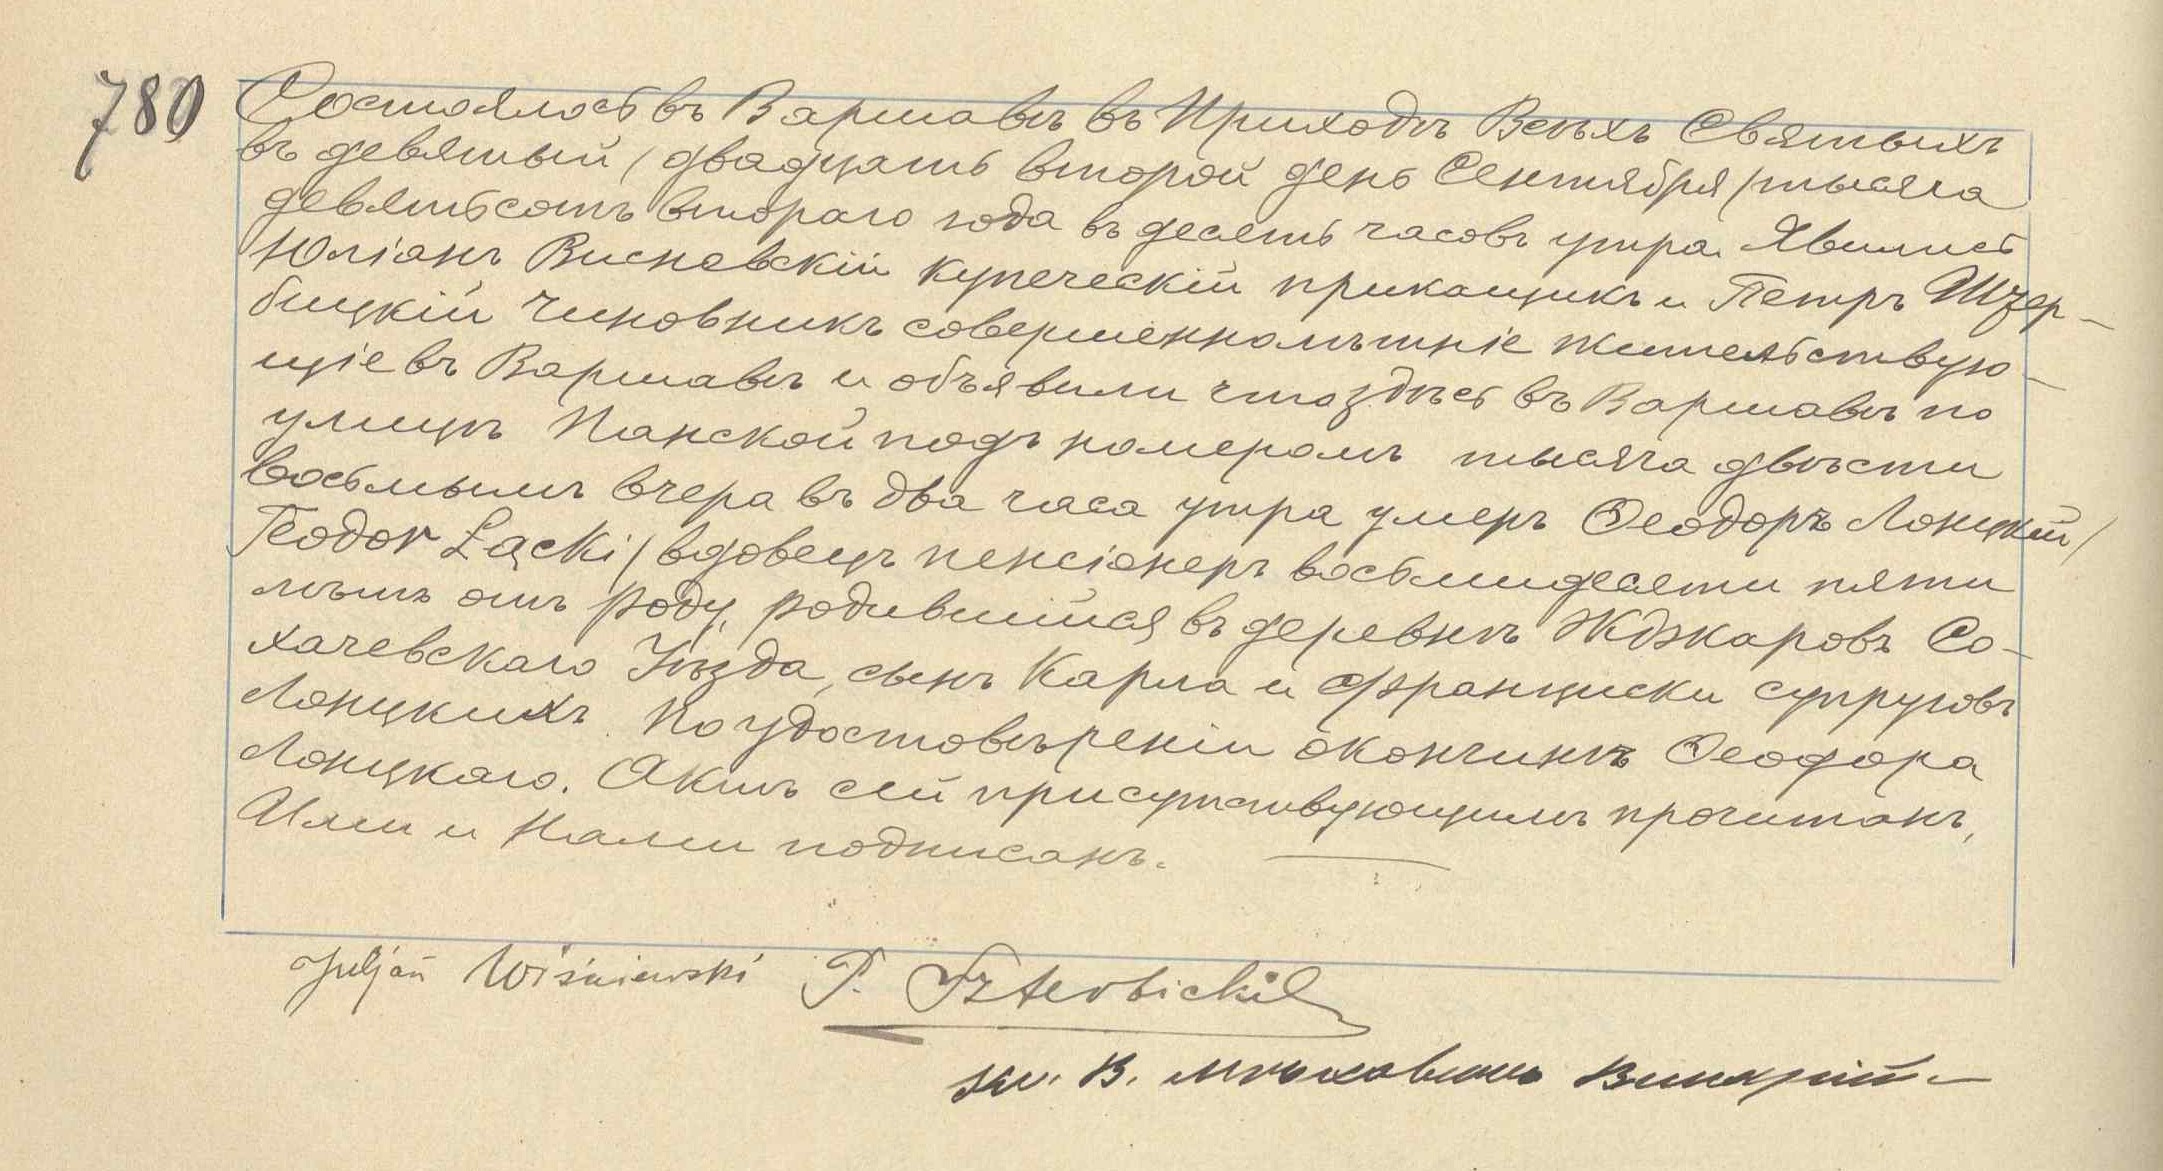 780
Состоялось въ Варшавѣ въ Приходѣ Всѣхъ Святыхъ
въ девятый / двадцать второй день Сентября / тысяча
девятьсотъ втораго года въ десять часовъ утра. Явились
Юліанъ Висневскій купеческій прикащикъ и Петръ Штер-
бицкій чиновникъ совершеннолѣтніе жительствую-
щіе въ Варшавѣ и объявили что здѣсь въ Варшавѣ по
улицѣ Панской подъ номеромъ тысяча двѣсти
восьмымъ вчера въ два часа утра умеръ Ѳеодоръ Лонцкій /
Teodor Łącki / вдовецъ пенсіонеръ восьмидесяти пяти
лѣтъ отъ роду, родившійся въ деревнѣ Жджаровъ Со-
хачевскаго Уѣзда, сынъ Карла и Франциски супруговъ
Лонцкихъ. По удостовѣреніи окончинѣ Ѳеодора
Лонцкаго. Актъ сей присутствующимъ прочитанъ,
Ими и Нами подписанъ.
Juljan Wiśniewski P. Szterbicki
Кс. В. Викарій